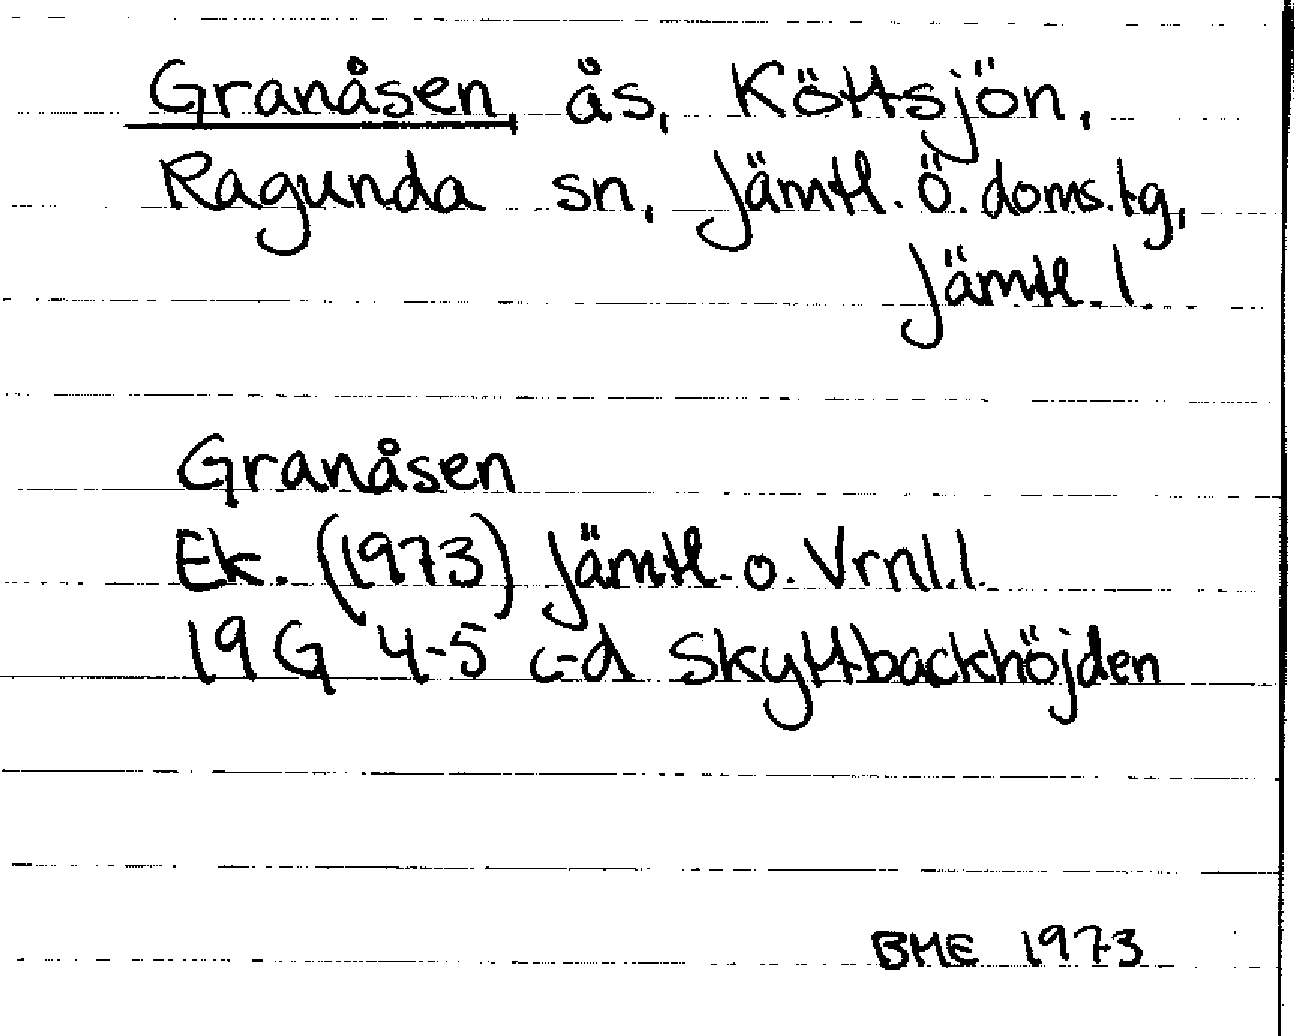 Granåsen, ås, Köttsjön,
Ragunda sn, Jämtl. Ö. doms.tg,
Jämtl. l.
Granåsen
Ek. (1973) Jämtl. o. Vrnl. l.
19 G 4-5 c-d Skyttbackhöjden
BME 1973